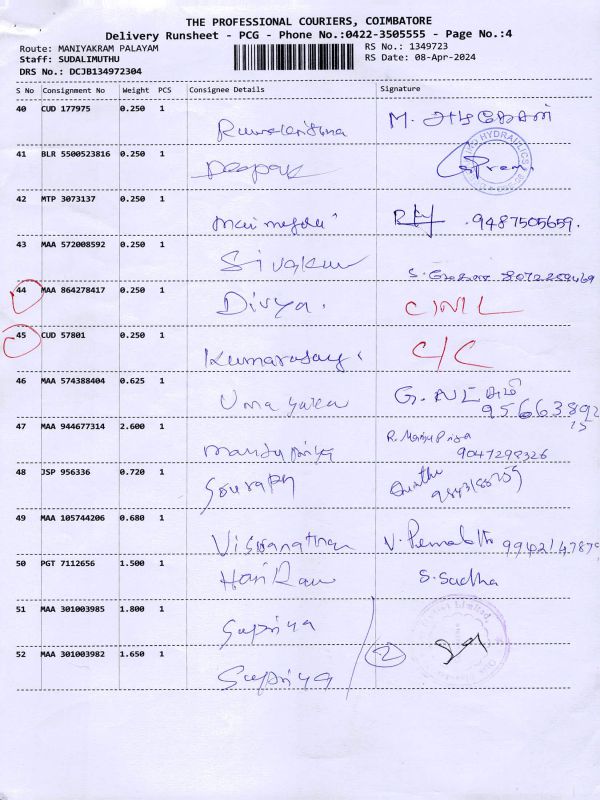 THE PROFESSIONAL COURIERS, COIMBATORE
Delivery Runsheet - PCG - Phone No.:0422-3505555 - Page No.:4
Route: MANIYAKRAM PALAYAM RS No.: 1349723
Staff: SUDALIMUTHU RS Date: 08-Apr-2024
DRS No.: DCJB134972304
S No Consignment No Weight PCS Consignee Details Signature
40 CUD 177975 0.250 1
M.
41 BLR 5500523816 0.250 1
HYDRAULICS
Deepak
42 MTP 3073137 0.250 1
9487505659.
43 MAA 572008592 0.250 1
Sivakum
S. 8072259469
44 MAA 864278417 0.250 1
Divya.
45 CUD 57801 0.250 1
C/C
Kumarasay
46 MAA 574388404 0.625 1
G.
Uma
95663892
15
47 MAA 944677314 2.600 1
R. Manju Priya
Manjupriya
9047298326
48 JSP 956336 0.720 1
Sourabh
49 MAA 105744206 0.680 1
Viswanathan
V.
50 PGT 7112656 1.500 1
Hari Ram S. Sudha
51 MAA 301003985 1.800 1
Limited
Supriya
52 MAA 301003982 1.650 1
2
Supriya